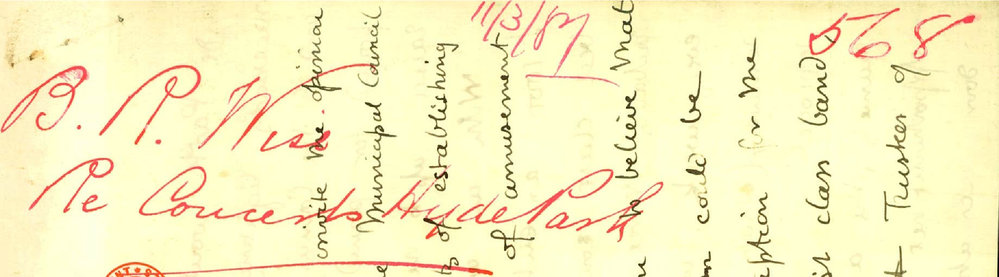 11/3/87
568
B. R. Wise
Re Concerts Hyde Park
invite the opinion
Municipal Council
of establishing
of amusement
to believe that
could be
for me
class band
Tusker of